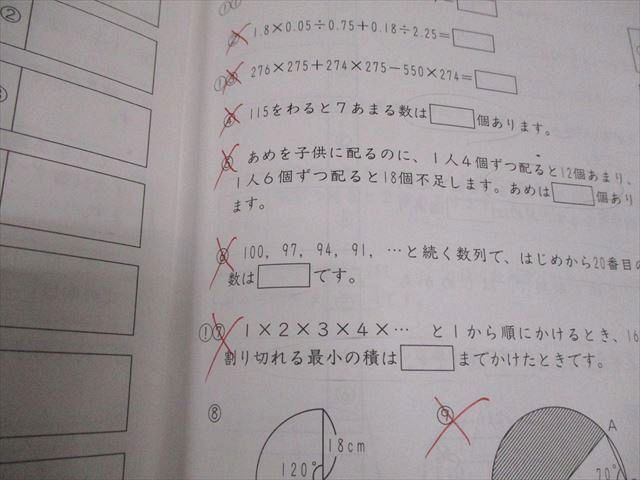 ②
①①
② 1.8×0.05÷0.75+0.18÷2.25=
①③ 276×275+274×275-550×274=
④ 115をわると7あまる数は 個あります。
⑤ あめを子供に配るのに、1人4個ずつ配ると12個あまり、
1人6個ずつ配ると18個不足します。あめは 個あり
ます。
⑥ 100, 97, 94, 91, …と続く数列で、はじめから20番目の
数は です。
①⑦ 1×2×3×4×… と1から順にかけるとき、16
割り切れる最小の積は までかけたときです。
⑧
⑨
18cm
120°
A
70°